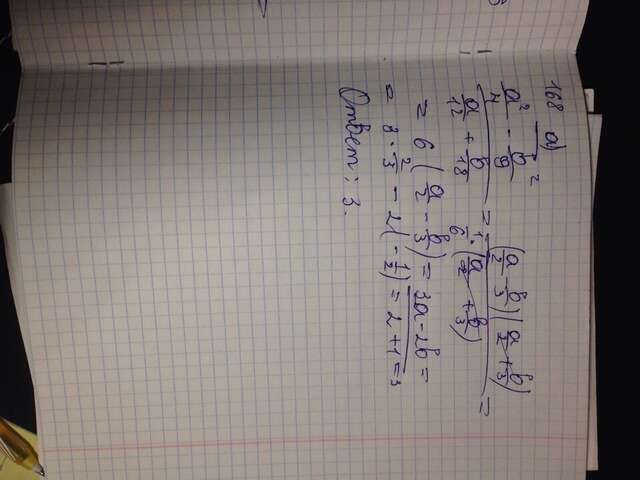 168 a)
a²/4 - b²/9 / a/12 + b/18 = (a/2 - b/3)(a/2 + b/3) / 1/6 · (a/2 + b/3) =
= 6 (a/2 - b/3) = 3a - 2b =
= 3 · 2/3 - 2(-1/2) = 2 + 1 = 3
Ответ: 3.